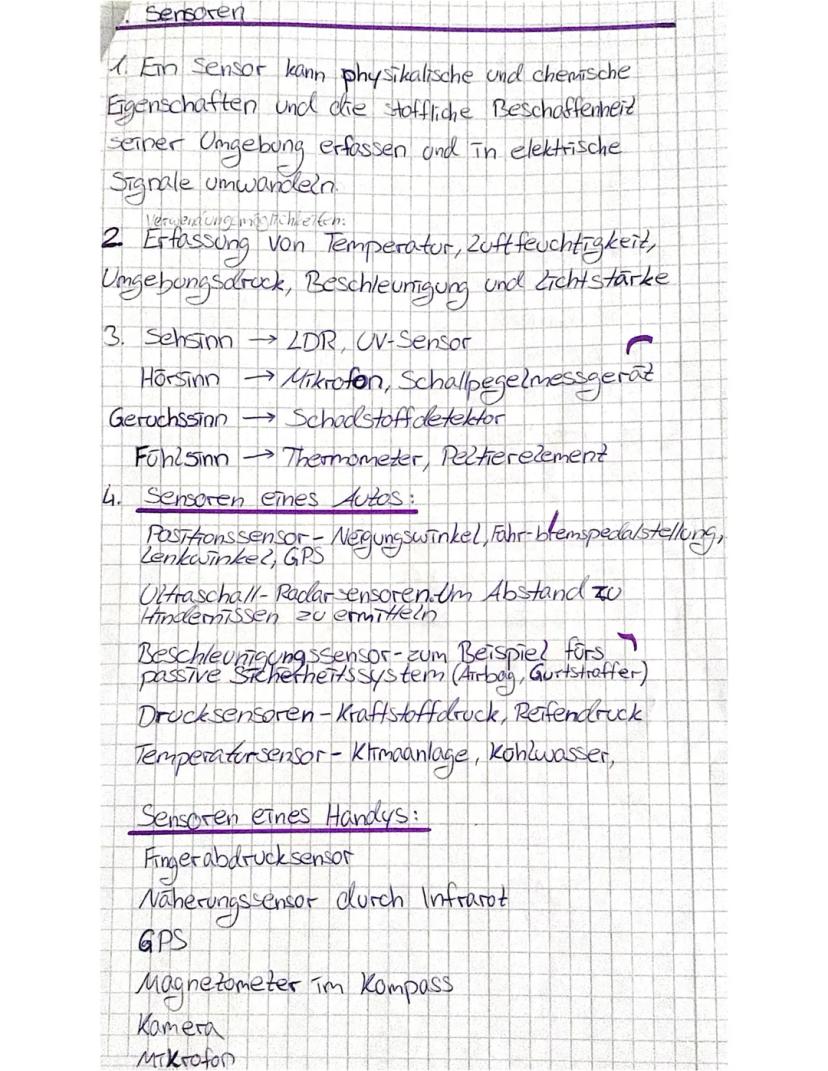 . Sensoren
1. Ein Sensor kann physikalische und chemische
Eigenschaften und die stoffliche Beschaffenheit
seiner Umgebung erfassen und in elektrische
Signale umwandeln.
Verwendungsmöglichkeiten:
2. Erfassung von Temperatur, Luftfeuchtigkeit,
Umgebungsdruck, Beschleunigung und Lichtstärke
3. Sehsinn → LDR, UV-Sensor
Hörsinn → Mikrofon, Schallpegelmessgerät
Geruchssinn → Schadstoffdetektor
Fühlsinn → Thermometer, Peltierelement
4. Sensoren eines Autos:
Positionssensor - Neigungswinkel, Fahr-bremspedalstellung,
Lenkwinkel, GPS
Ultraschall- Radarsensoren. Um Abstand zu
Hindernissen zu ermitteln
Beschleunigungssensor - zum Beispiel fürs
passive Sicherheitssystem (Airbag, Gurtstraffer)
Drucksensoren - Kraftstoffdruck, Reifendruck
Temperatursensor - Klimaanlage, Kühlwasser,
Sensoren eines Handys:
Fingerabdrucksensor
Näherungssensor durch Infrarot
GPS
Magnetometer im Kompass
Kamera
Mikrofon